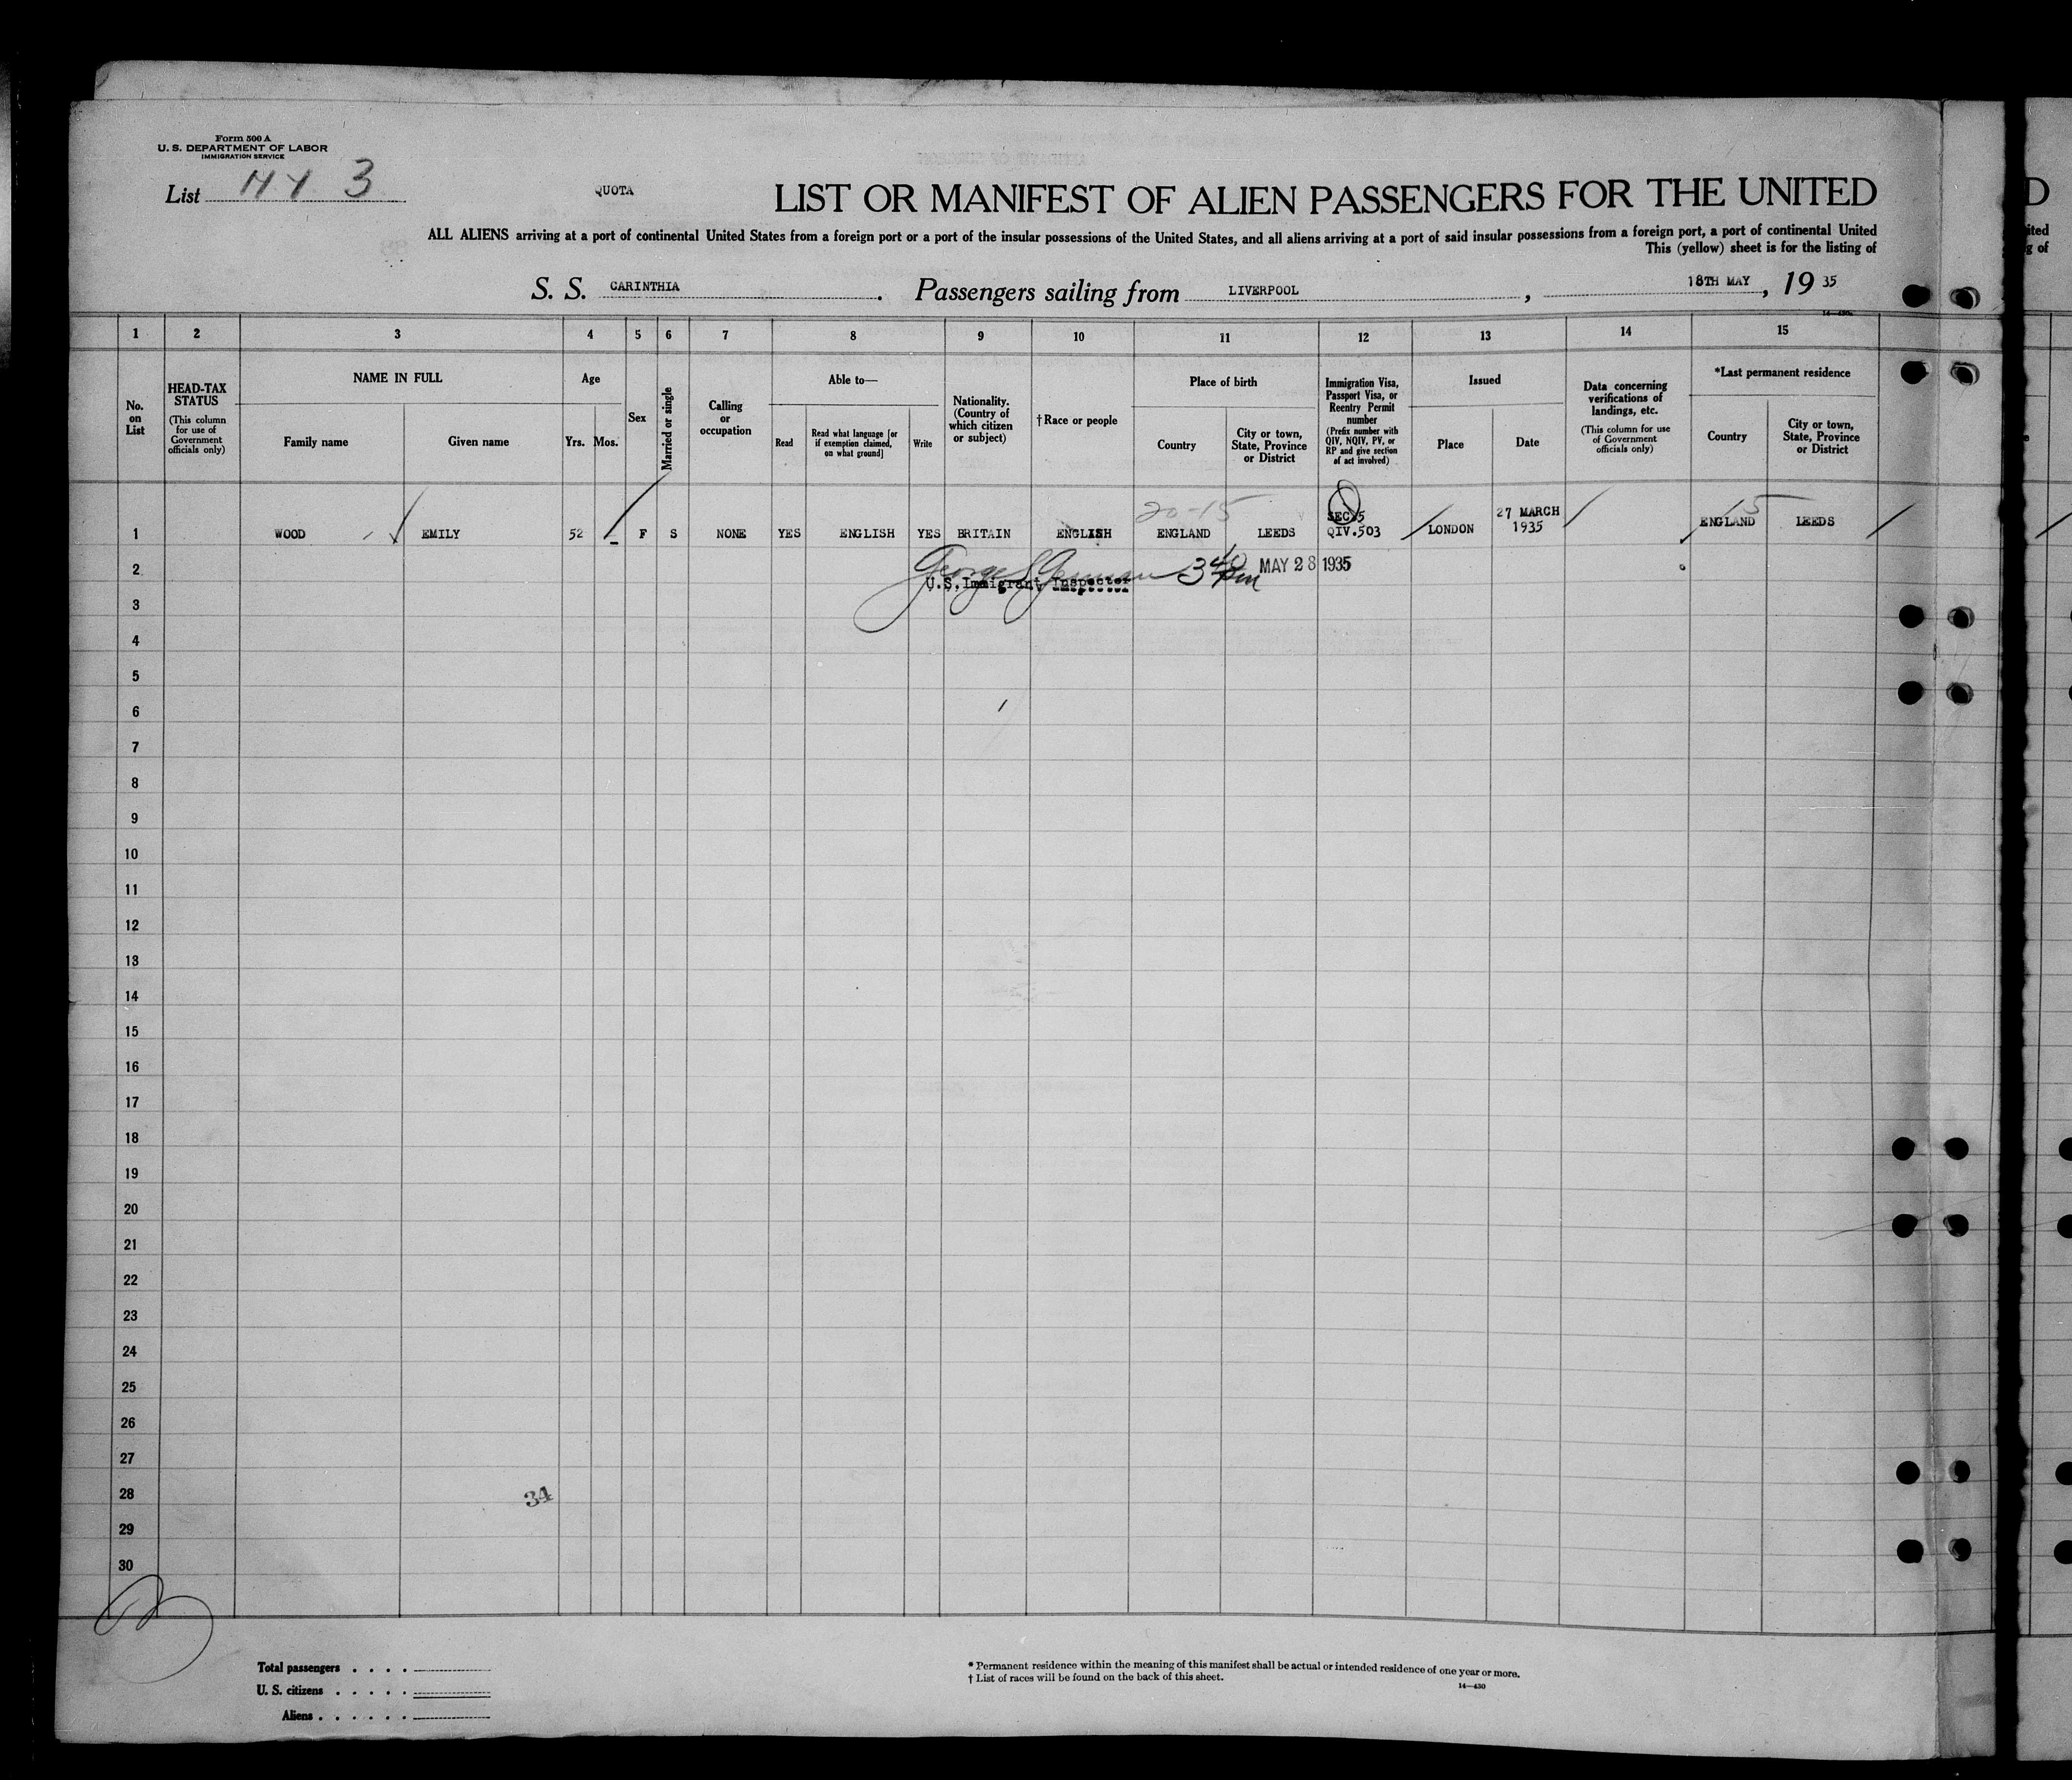 Form 500 A
U. S. DEPARTMENT OF LABOR
IMMIGRATION SERVICE
List 3
QUOTA
LIST OR MANIFEST OF ALIEN PASSENGERS FOR THE UNITED
ALL ALIENS arriving at a port of continental United States from a foreign port or a port of the insular possessions of the United States, and all aliens arriving at a port of said insular possessions from a foreign port, a port of continental United
This (yellow) sheet is for the listing of
S. S. CARINTHIA . Passengers sailing from LIVERPOOL , 18TH MAY , 19 35
1 2 3 4 5 6 7 8 9 10 11 12 13 14 15
No. on List
HEAD-TAX STATUS
(This column for use of Government officials only)
NAME IN FULL
Family name
Given name
Age
Yrs. Mos.
Sex
Married or single
Calling or occupation
Able to—
Read
Read what language [or if exemption claimed, on what ground]
Write
Nationality. (Country of which citizen or subject)
† Race or people
Place of birth
Country
City or town, State, Province or District
Immigration Visa, Passport Visa, or Reentry Permit number
(Prefix number with QIV, NQIV, PV, or RP and give section of act involved)
Issued
Place
Date
Data concerning verifications of landings, etc.
(This column for use of Government officials only)
*Last permanent residence
Country
City or town, State, Province or District
20-15
15
1 WOOD EMILY 52 - F S NONE YES ENGLISH YES BRITAIN ENGLISH ENGLAND LEEDS QIV.503 LONDON 27 MARCH 1935 ENGLAND LEEDS
2 George 3 40 pm MAY 28 1935
U.S. Immigrant Inspector
3
4
5
6
7
8
9
10
11
12
13
14
15
16
17
18
19
20
21
22
23
24
25
26
27
28
34
29
30
Total passengers
U. S. citizens
Aliens
* Permanent residence within the meaning of this manifest shall be actual or intended residence of one year or more.
† List of races will be found on the back of this sheet.
14—430